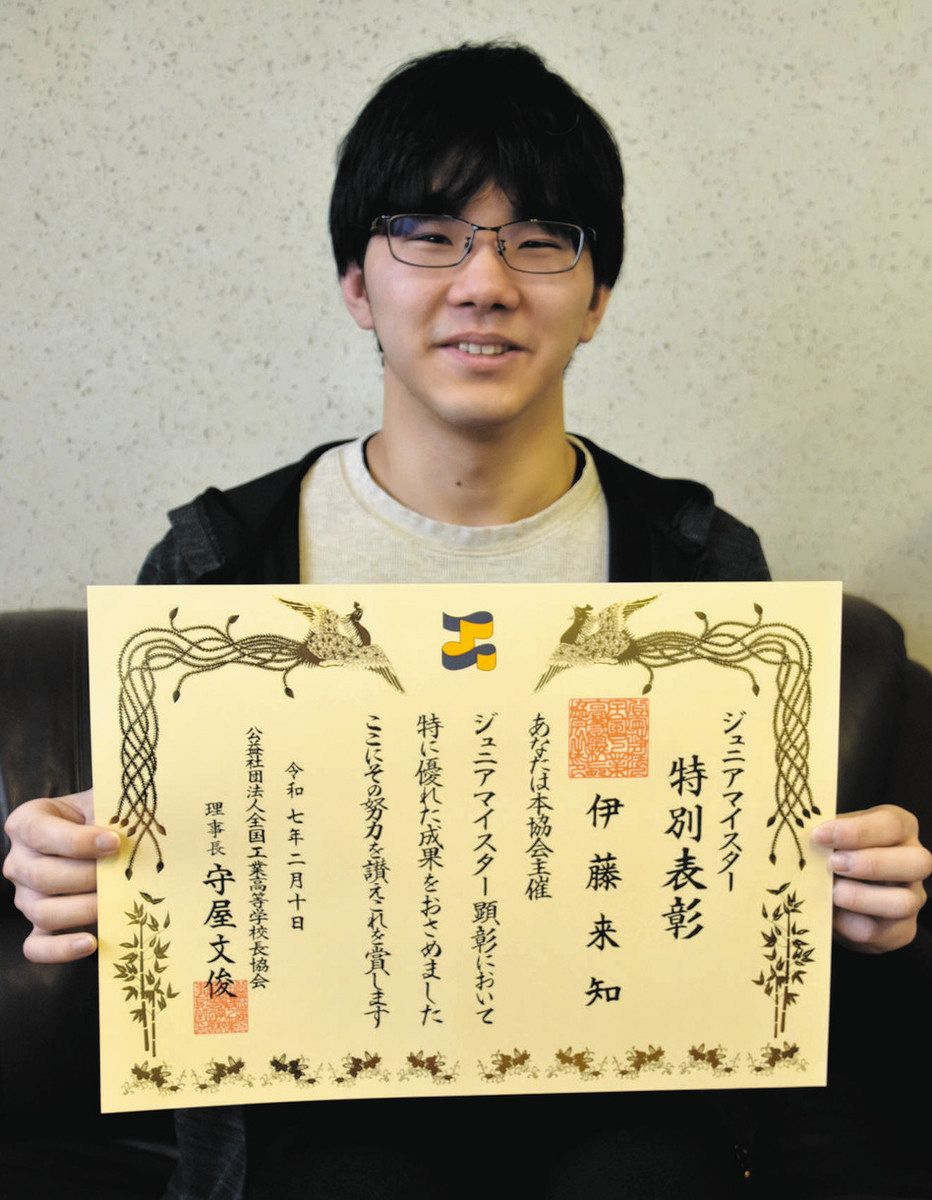 ジュニアマイスター
特別表彰
伊藤来知
あなたは本協会主催
ジュニアマイスター顕彰において
特に優れた成果をおさめました
ここにその努力を讃えこれを賞します
令和七年二月十日
公益社団法人全国工業高等学校長協会
理事長 守屋文俊